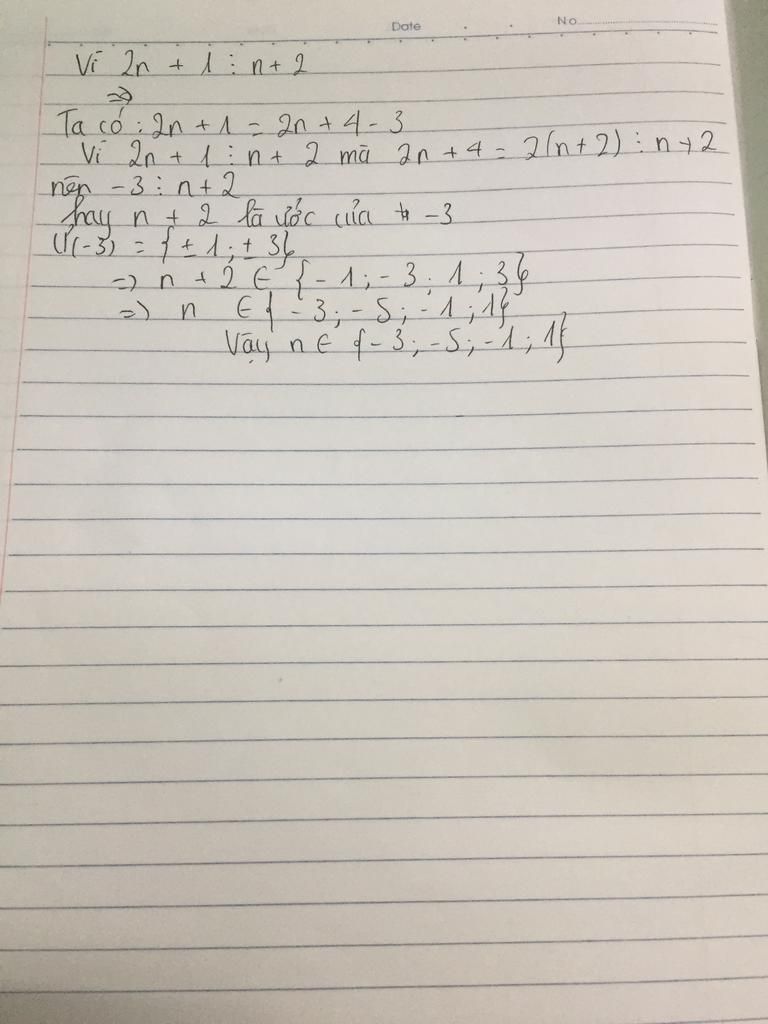 Date No
Vì 2n + 1 ⋮ n + 2
=>
Ta có : 2n + 1 = 2n + 4 - 3
Vì 2n + 1 ⋮ n + 2 mà 2n + 4 = 2(n + 2) ⋮ n + 2
nên -3 ⋮ n + 2
hay n + 2 là ước của -3
Ư(-3) = { ± 1 ; ± 3}
=> n + 2 ∈ { -1 ; -3 ; 1 ; 3}
=> n ∈ { -3 ; -5 ; -1 ; 1}
Vậy n ∈ { -3 ; -5 ; -1 ; 1}